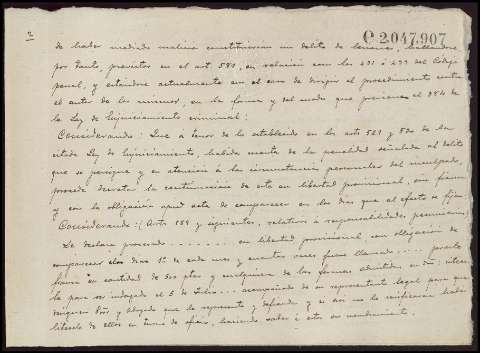 2
C 2.047,907
de haber mediado malicia constituirian un delito de lesiones, hallandose
por tanto, previstos en el art 581, en relacion con los 431 á 433 del Codigo
penal, y estandose actualmente en el caso de dirigir el procedimiento contra
el autor de las mismas, en la forma y del modo que previene el 384 de
la Ley de Enjuiciamiento criminal:
Considerando: Que á tenor de lo establecido en los arts 529 y 530 de la
citada Ley de Enjuiciamiento, habida cuenta de la penalidad señalada al delito
que se persigue y en atención á las circunstancias personales del inculpado,
procede decretar la continuacion de este en libertad provisional, sin fianza
y con la obligacion apud acta de comparecer en los dias que al efecto se fijan
Considerando: (Arts 589 y siguientes, relativos á responsabilidades pecuniarias)
Se declara procesado . . . . . . . en libertad provisional, con obligacion de
comparecer los dias 1º de cada mes y cuantas veces fuere llamado . . . . preste
fianza en cantidad de 500 ptas y cualquiera de las formas admitidas en
la para ser indagado el 5 de Julio . . . acompañado de su representante legal para que
designen Pror y Abogado que le represente y defienda y si asi no lo verificaren
de ellos en turno de oficio, haciendo saber á estos su nombramiento.